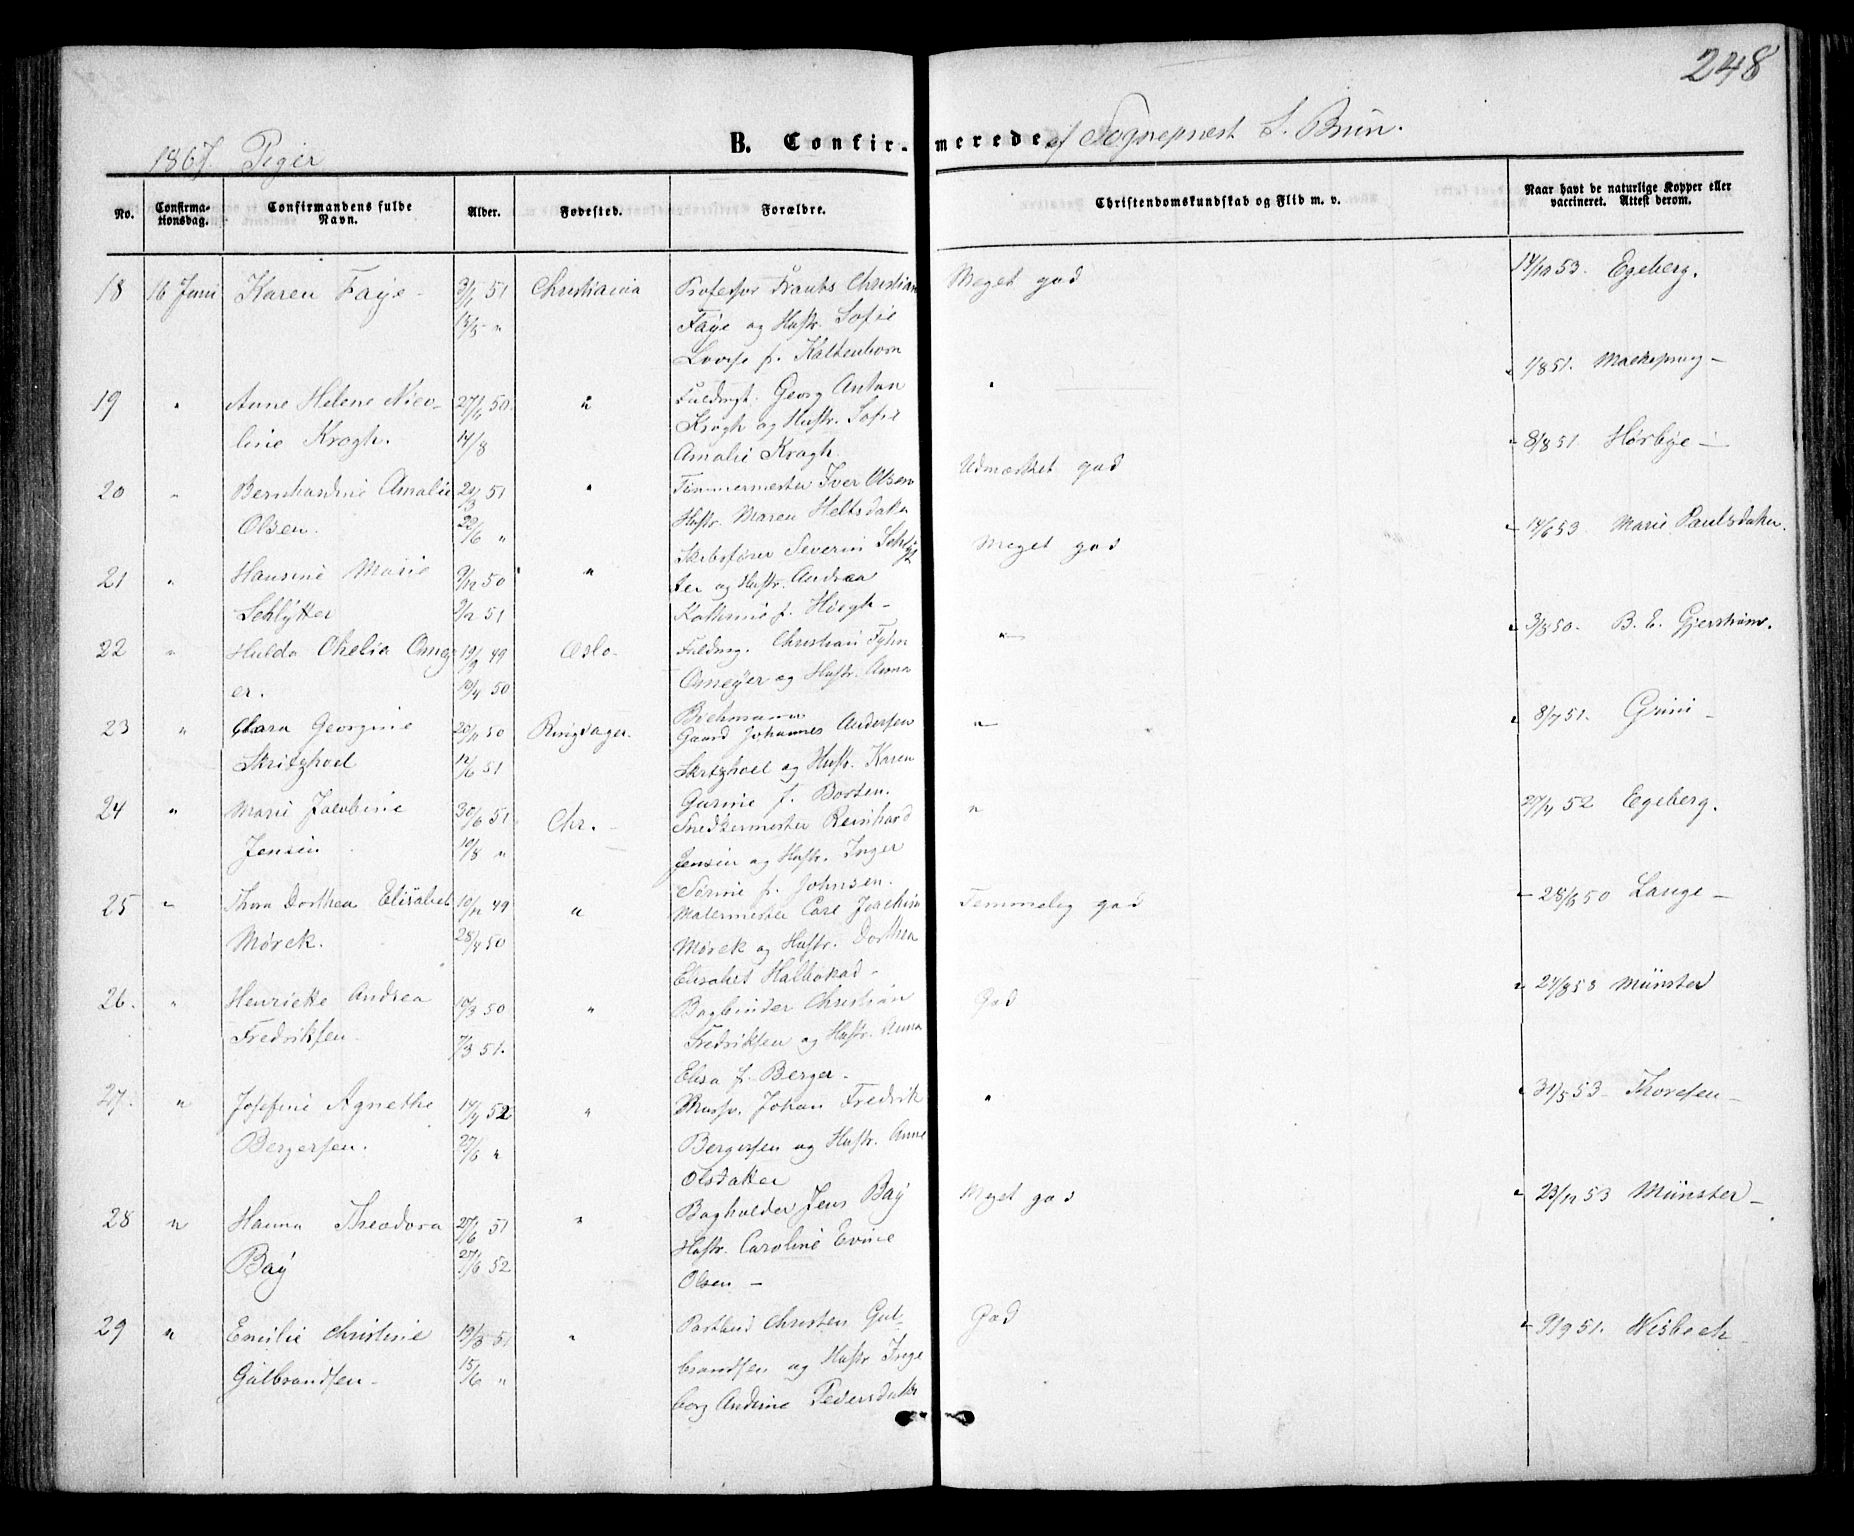 248
1867. Piger
B. Confirmerede af Sognepræst S. Brun.
No.
Confirmationsdag.
Confirmandens fulde Navn.
Alder.
Fødested.
Forældre.
Christendomskundskab og Flid m. v.
Naar havt de naturlige Kopper eller vaccineret. Attest derom.
18 16 Juni Karen Faye - 3/1 51 Christiania Professor Frants Christian Meget god 14/10 53. Egeberg.
13/5 " Faye og Hustr. Sofie
Lovise f. Kaltenborn
19 " Anne Helene Nico- 27/6 50 " Fuldmgt. Georg Anton " 1/8 51.
line Krogh. 14/8 Krogh og Hustr. Sofie
Amalie Krogh.
20 " Bernhardine Amalie 20/3 51 " Tømmermester Iver Olsen Udmærket god 8/8 51 Hørbye -
Olsen. 22/6 " Hustr. Maren
21 " Hansine Marie 9/12 50 " Skibsfører Severin Schlyt Meget god 14/6 53 Marie Paulsdatter.
Schlytter 2/2 51 ter og Hustr. Andrea
Kathrine f. Høegh -
22 " Hulda Othelia Omey 19/9 49 Oslo - Fuldmg. Christian Fyhn " 3/8 50. B. E. Gjerstrøm.
er. 10/4 50 Omeyer og Hustr. Anna
23 " Clara Georgine 20/11 50 Ringsager. Gaard Johannes Andersen " 8/7 51. Grini -
Skritzhoel 12/6 51 Skritzhoel og Hustr. Karen
Gurine f. Borten.
24 " Marie Jacobine 30/6 51 Chr. - Snedkermester Reinhard " 27/4 52 Egeberg.
Jensen 10/8 " Jensen og Hustr. Inger
Sørine f. Johnsen.
25 " Thora Dorthea Elisabet 10/12 49 " Malermester Carl Joachim Temmelig god 28/6 50 Lange -
Mørck. 28/4 50 Mørck og Hustr. Dorthea
Elisabet
26. " Henriette Andrea 10/3 50 " Bogbinder Christian God 27/8 53 Münster
Fredriksen. 7/3 51. Fredriksen og Hustr. Anna
Elisa f. Berger -
27. " Josefine Agnethe 17/4 52 " Johan Fredrik " 31/5 53 - Thoresen -
Bergersen. 27/6 " Bergersen og Hustr. Anne
Olsdatter
28 " Hanna Theodora 27/6 51 " Bogholder Jens Bay Meget god 23/11 53 Münster -
Bay 27/6 52 Hustr. Caroline Evine
Olsen -
29 " Emilie Christine 19/3 51 " Postbud Christen Gul- God 9/9 51. Wisbech -
Gulbrandsen - 15/6 " brandsen og Hustr Inge
borg Andrine Pedersdatter